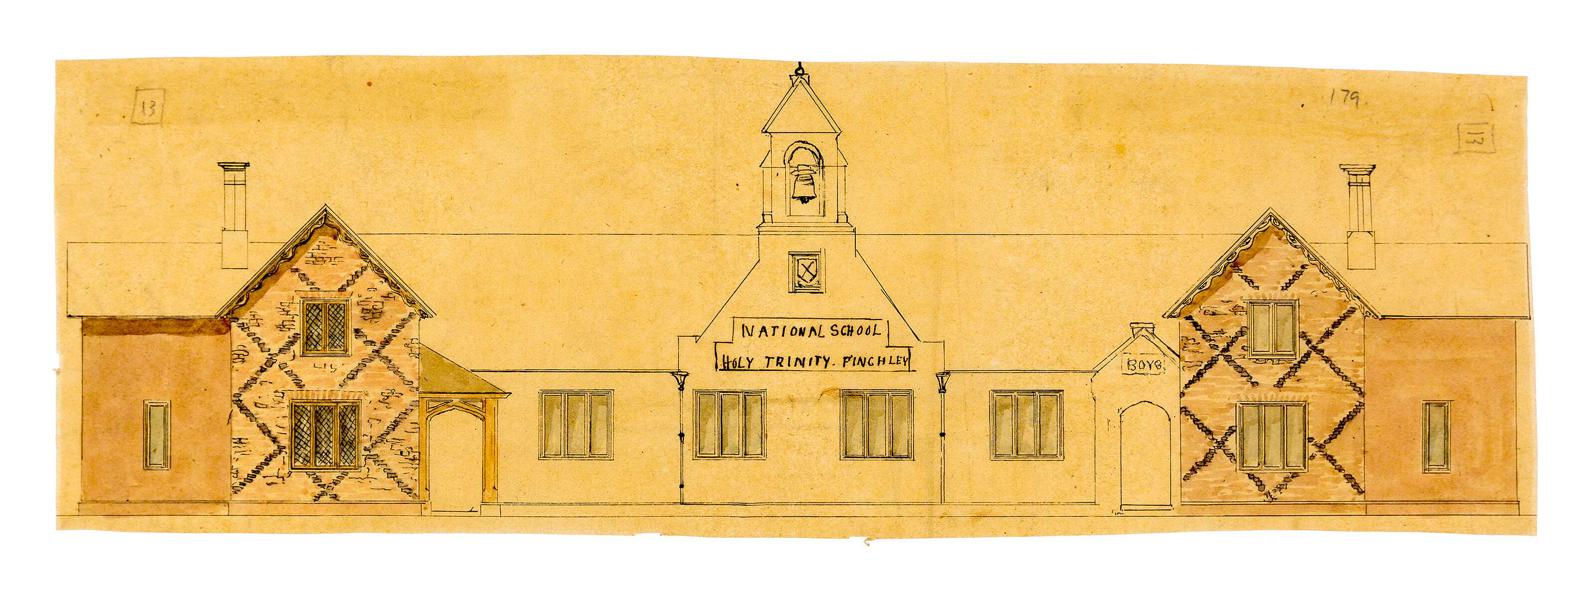 13
179.
13
NATIONAL SCHOOL
HOLY TRINITY. FINCHLEY
BOYS